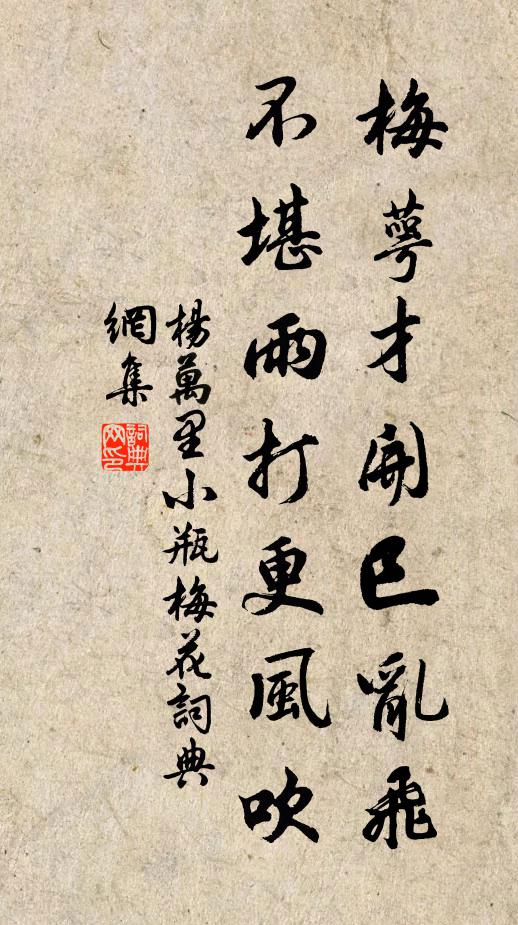 梅萼才開已亂飛
不堪雨打更風吹
楊萬里小瓶梅花詞典
網集
詞典
网印